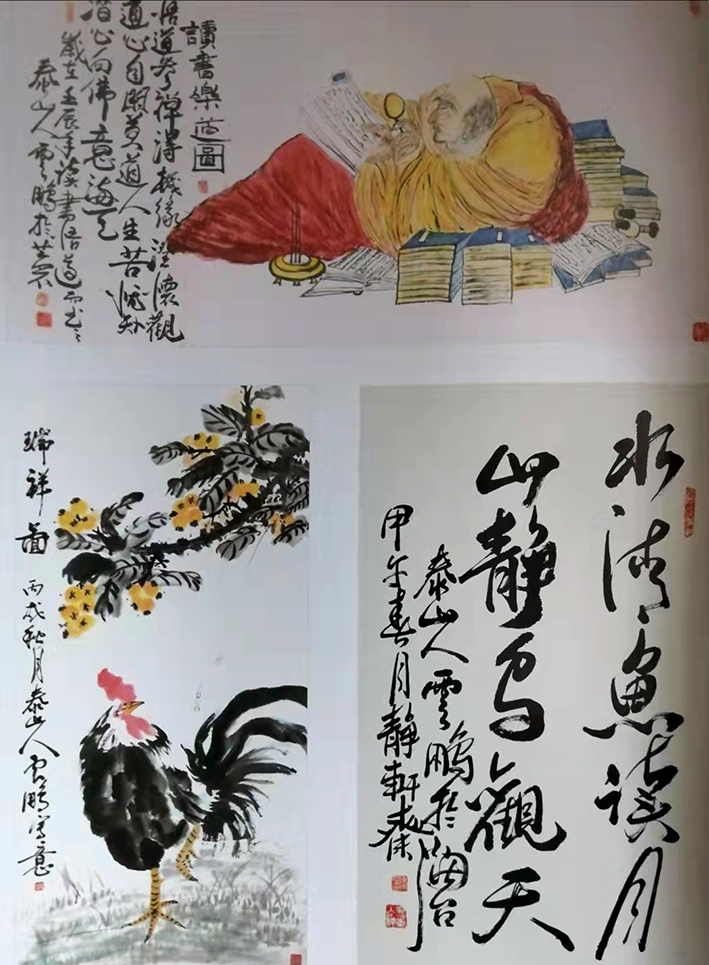 讀書樂道圖
悟道參禪得機緣 觀
道心自照莫道人生苦
潛心向佛意海天
歲在壬辰年讀書悟道而書之
泰山人雲鵬於芝罘
瑞祥圖
丙戌秋月泰山人雲鵬寫意
水清魚讀月
山靜鳥觀天
泰山人雲鵬於烟台
甲午春月靜軒齋